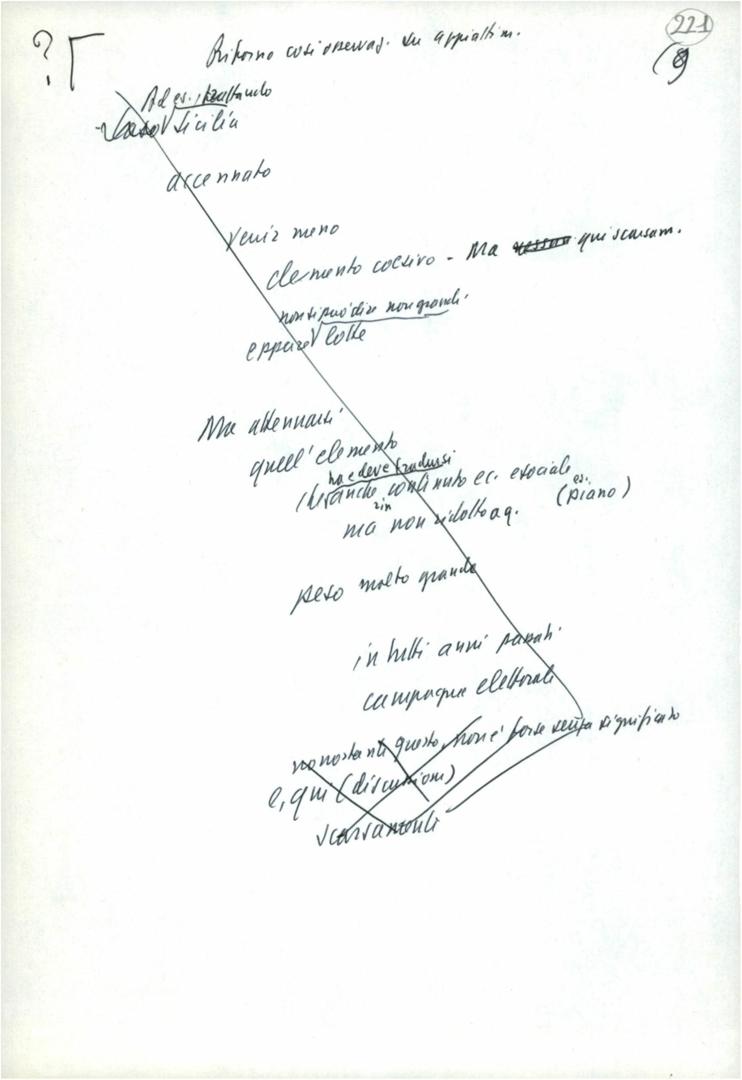 221
? Ritorno così osservaz. su appiattim.
(9
Ad es., trattando
caso Sicilia
accennato
venir meno
elemento coesivo - Ma qui scarsam.
non si può dire non grandi
eppure lotte
Ma attenuarsi
quell'elemento
ha e deve tradursi
che anche in contenuto ec. e sociale
es.
(piano)
ma non ridotto a q.
peso molto grande
in tutti anni passati
campagne elettorali
nonostante questo, non è forse senza significato
e, qui (discussioni)
scarsamente